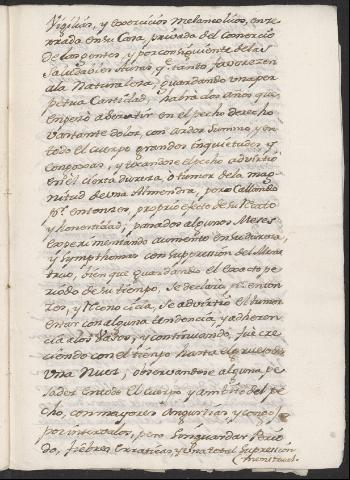 Vigilias, y exercicios melancolicos, ence
rrada en su Casa, privada del Comercio
de los gentes, y por consiguiente de las
Saludables que tanto favorezen
ala Naturaleza, guardando una per
petua Castidad, habra dos años que
empezó a sentir en el pecho derecho
bastante dolor, con ardor Summo, y en
todo el cuerpo grandes inquietudes y
Congojas, y tocandose el pecho advirtio
en el cierta dureza, o tumor de la mag
nitud de una Almendra, pero Callando
pr. entonzes, proprio efecto de su Recato
y honestidad; pasados algunos Meses
experimentando aumento en su dureza,
y symptomas con supresion del Mens
truo, bien que guardando el exacto pe
riodo de su tiempo, se declaró pr. enton
zes, y se advirtio el tumor
estar con alguna tendencia, y adheren
cia a los Vasos, y continuando, fue cre
ciendo con el tiempo hasta el grueso de
una Nuez, observandose alguna pe
sadez en todo el cuerpo y ambito del pe
cho, con mayores Angustias, y congo
por intervalos, pero sin guardar Perio
do, fiebres Erraticas, y una total Supression
menstrual.